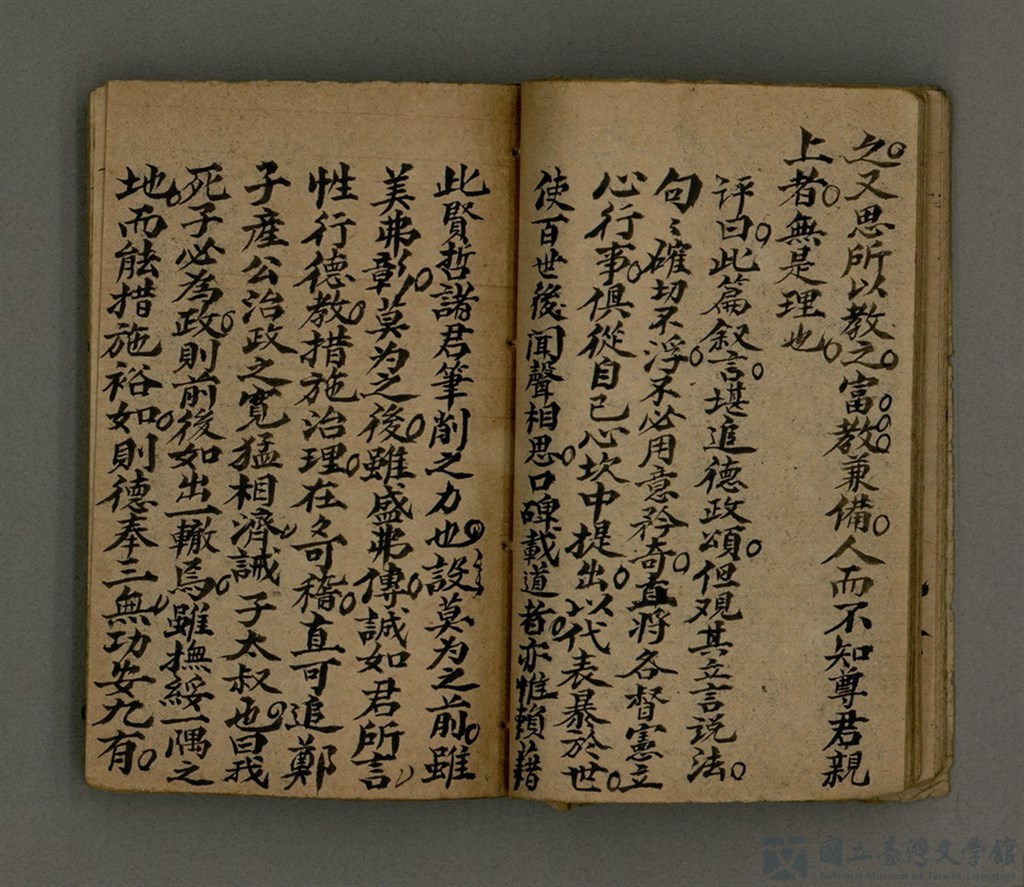 之。又思所以教之。富教兼備。人而不知尊君親
上者。無是理也。
评曰。此篇叙言。堪追德政頌。但观其立言说法。
句〻確切不浮。不必用意矜奇。直將各督憲立
心行事。俱從自己心坎中提出。以代表暴於世。
使百世後聞聲相思。口碑載道者。亦惟賴藉
此賢哲諸君筆削之力也。設莫为之前。雖
美弗彰。莫为之後。雖盛弗傳。誠如君所言。
性行德教。措施治理。在々可稽。直可追鄭
子產公治政之寬猛相濟。誡子太叔也。曰我
死子必為政。則前後如出一轍焉。雖撫綏一隅之
地。而能措施裕如。則德奉三無。功安九有。
國立臺灣文學館
National Museum of Taiwan Literature